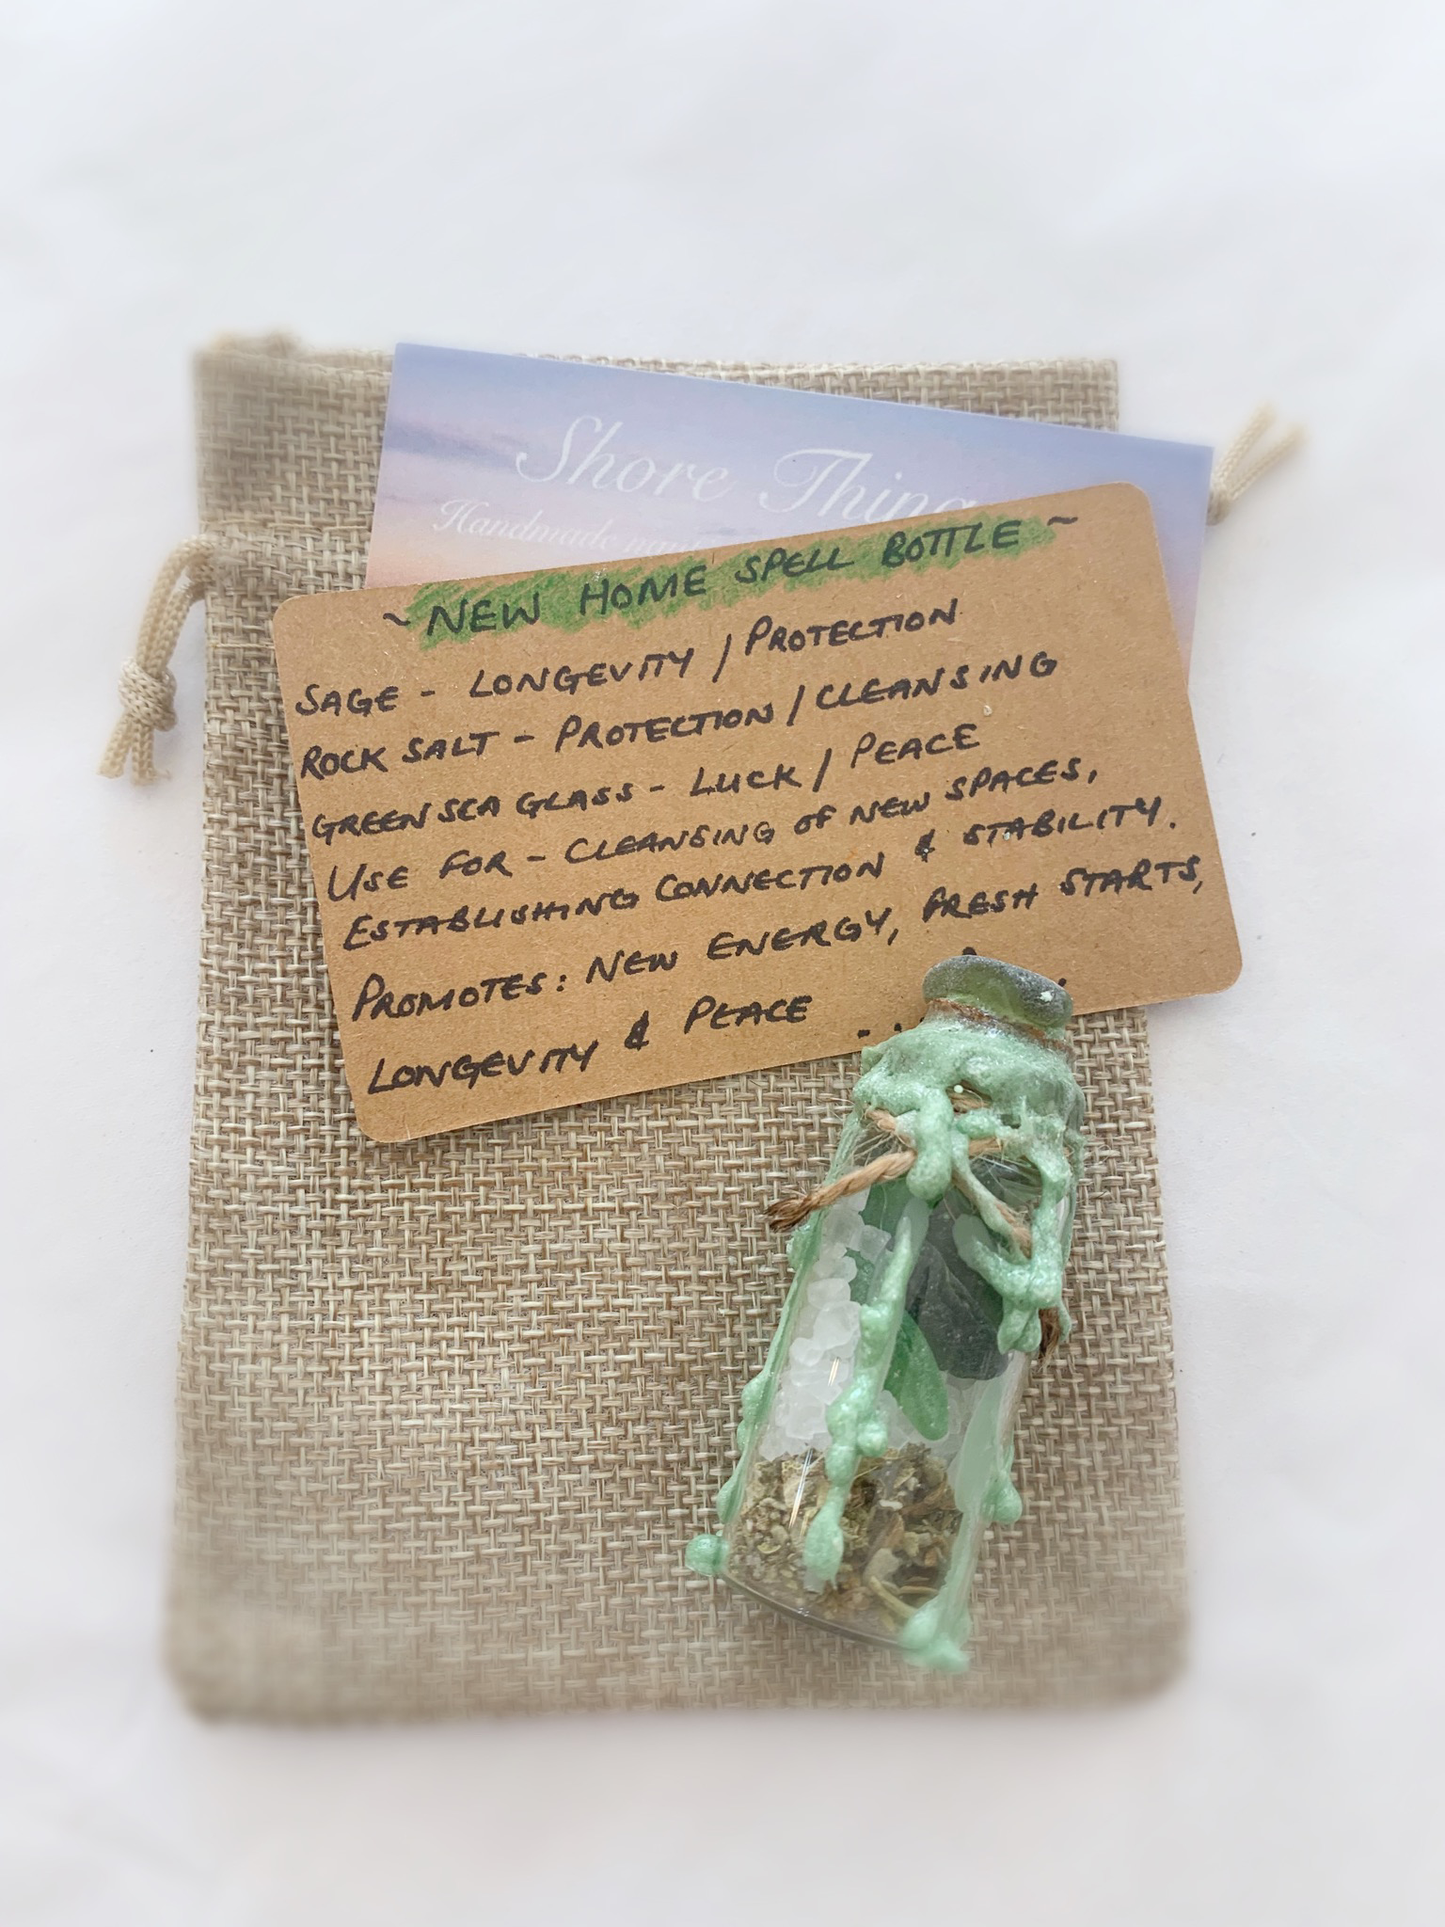 Shore Thing
Handmade
~ NEW HOME SPELL BOTTLE ~
SAGE - LONGEVITY / PROTECTION
ROCK SALT - PROTECTION / CLEANSING
GREEN SEA GLASS - LUCK / PEACE
USE FOR - CLEANSING OF NEW SPACES,
ESTABLISHING CONNECTION & STABILITY.
PROMOTES: NEW ENERGY, FRESH STARTS,
LONGEVITY & PEACE